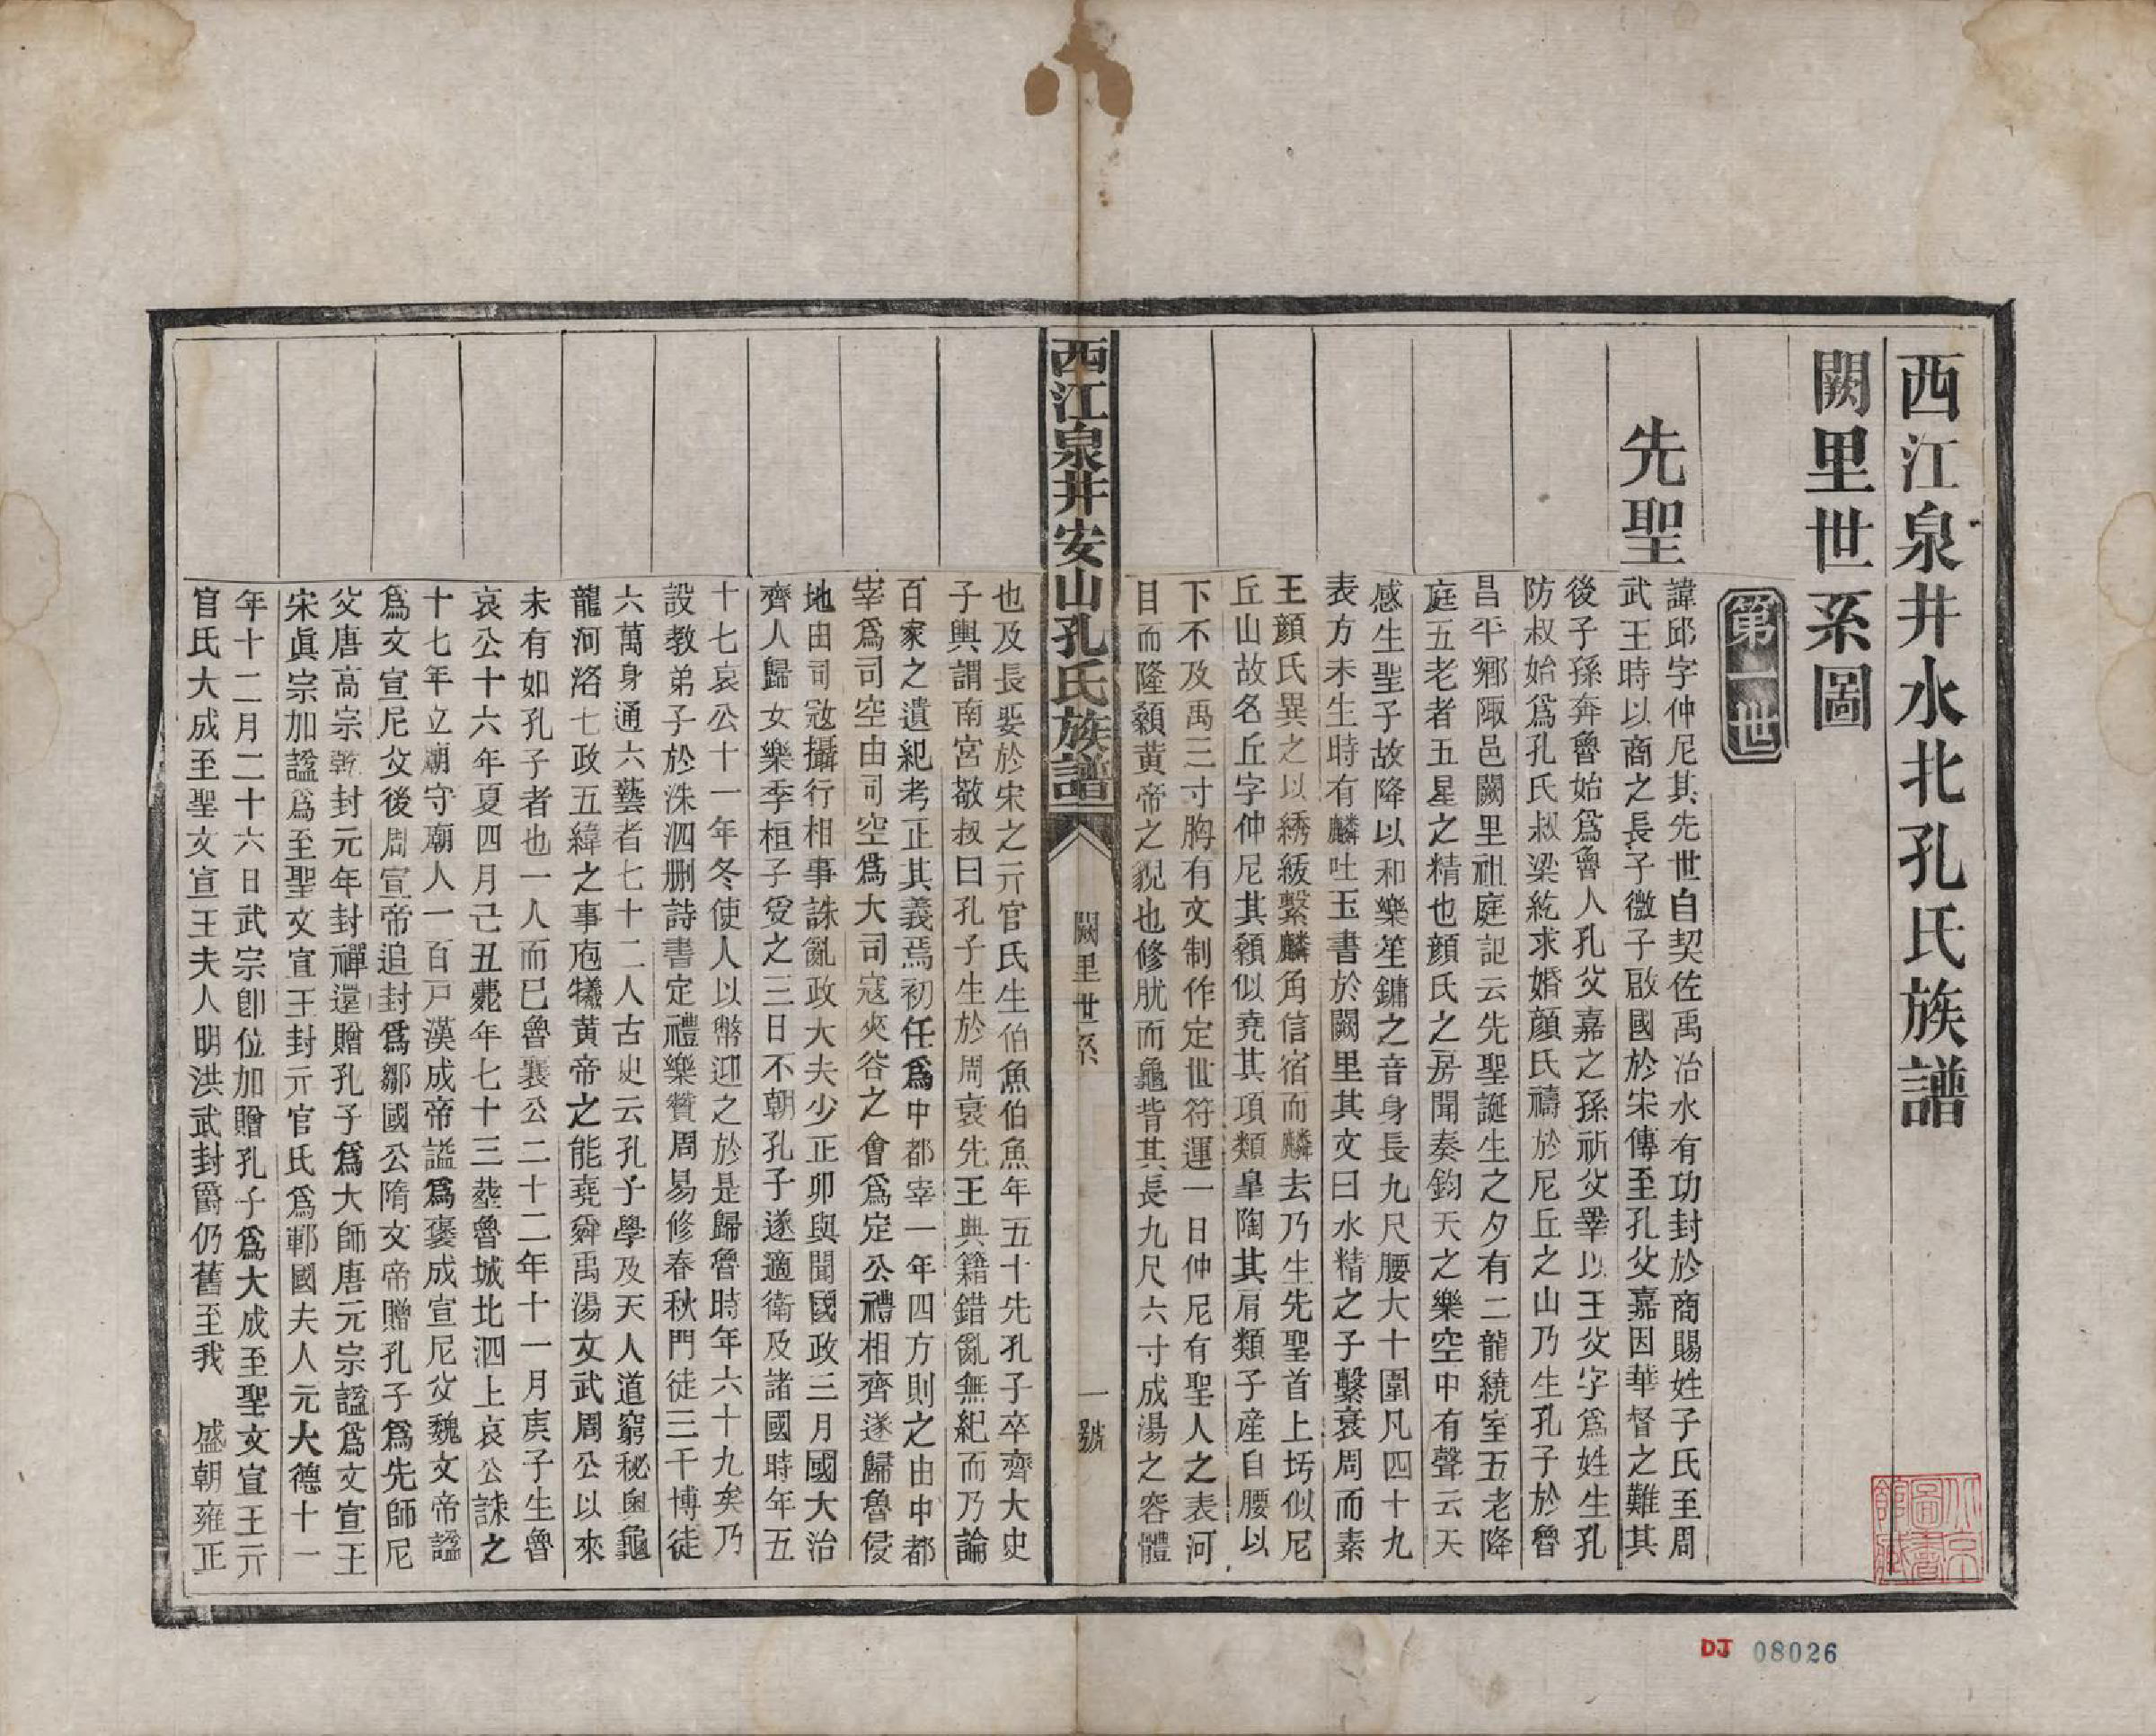 西江泉井水北孔氏族譜
闕里世系圖
第一世
先聖
諱邱字仲尼其先世自契佐禹治水有功封於商賜姓子氏至周
武王時以商之長子微子啟國於宋傳至孔父嘉因華督之難其
後子孫奔魯始爲魯人孔父嘉之孫祈父畢以王父字爲姓生孔
防叔始爲孔氏叔梁紇求婚顏氏禱於尼丘之山乃生孔子於魯
昌平鄉陬邑闕里祖庭記云先聖誕生之夕有二龍繞室五老降
庭五老者五星之精也顏氏之房聞奏鈞天之樂空中有聲云天
感生聖子故降以和樂笙鏞之音身長九尺腰大十圍凡四十九
表方未生時有麟吐玉書於闕里其文曰水精之子繫衰周而素
王顏氏異之以綉紱繫麟角信宿而麟去乃生先聖首上圬似尼
丘山故名丘字仲尼其顙似堯其項類臯陶其肩類子產自腰以
下不及禹三寸胸有文制作定世符運一日仲尼有聖人之表河
目而隆顙黃帝之貌也修肱而龜背其長九尺六寸成湯之容體
西江泉井安山孔氏族譜
闕里世系
一號
也及長娶於宋之亓官氏生伯魚伯魚年五十先孔子卒齊大史
子輿謂南宮敬叔曰孔子生於周衰先王典籍錯亂無紀而乃論
百家之遺紀考正其義焉初任爲中都宰一年四方則之由中都
宰爲司空由司空爲大司寇夾谷之會爲定公禮相齊遂歸魯侵
地由司寇攝行相事誅亂政大夫少正卯與聞國政三月國大治
齊人歸女樂季桓子受之三日不朝孔子遂適衛及諸國時年五
十七哀公十一年冬使人以幣迎之於是歸魯時年六十九矣乃
設教弟子於洙泗删詩書定禮樂贊周易修春秋門徒三千博徒
六萬身通六藝者七十二人古史云孔子學及天人道窮秘奥龜
龍河洛七政五緯之事庖犧黃帝之能堯舜禹湯文武周公以來
未有如孔子者也一人而已魯襄公二十二年十一月庚子生魯
哀公十六年夏四月己丑薨年七十三塟魯城北泗上哀公誄之
十七年立廟守廟人一百戸漢成帝謚爲褒成宣尼父魏文帝謚
爲文宣尼父後周宣帝追封爲鄒國公隋文帝贈孔子爲先師尼
父唐高宗乾封元年封禪還贈孔子爲大師唐元宗謚爲文宣王
宋眞宗加謚爲至聖文宣王封亓官氏爲鄆國夫人元大德十一
年十二月二十六日武宗卽位加贈孔子爲大成至聖文宣王亓
官氏大成至聖文宣王夫人明洪武封爵仍舊至我　盛朝雍正
北京圖書館藏
DJ 08026